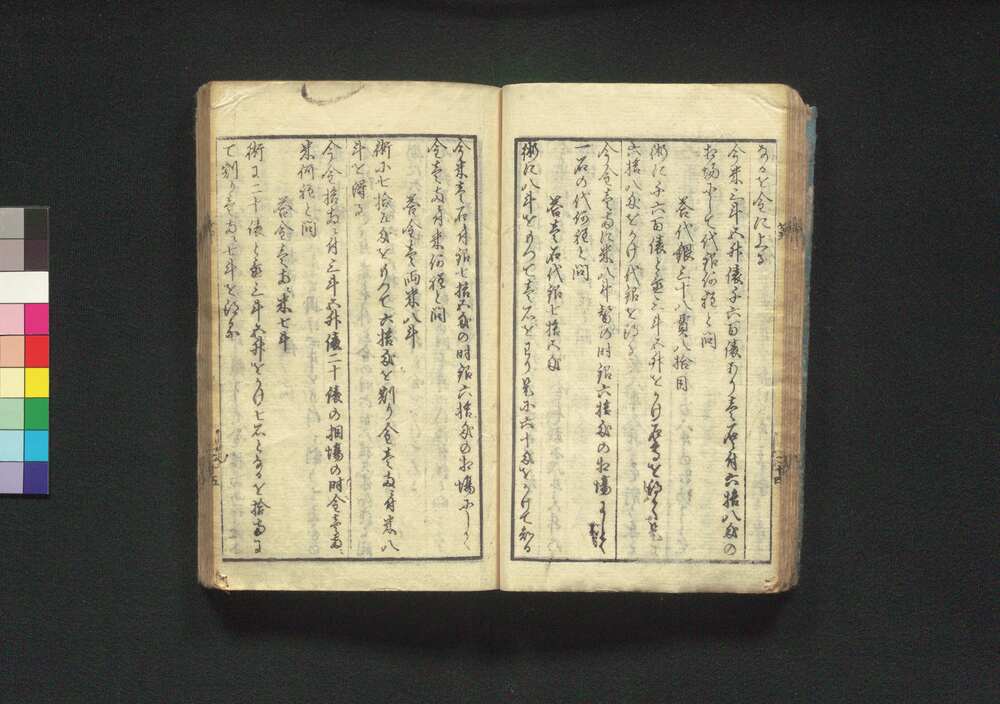 今米三斗五升俵千六百俵あり壱石ニ付六拾八匁の
相場にして代銀何程と問
答代銀三十八貫八拾目
術に千六百俵と置三斗五升をかけ石高を得る是に
六拾八匁をかけ代銀を得る
今金壱両に米八斗替の時銀六拾匁の相場にして
一石の代何程と問
答壱石代銀七拾五匁
術に八斗をもつて壱石をわり是に六十匁をかけて知る
今米壱石ニ付銀七拾五匁の时銀六拾匁の相場にして
金壱両ニ付米何程と問
答金壱両米八斗
術に七拾五匁をもつて六拾匁を割り金壱両ニ付米八
斗を得る
今金拾両ニ付三斗五升俵二十俵の相場の时金壱両ニ
米何程と問
答金壱両米七斗
術に二十俵と置三斗五升をかけ七石となるを拾両に
て割り壱両ニ七斗を得る